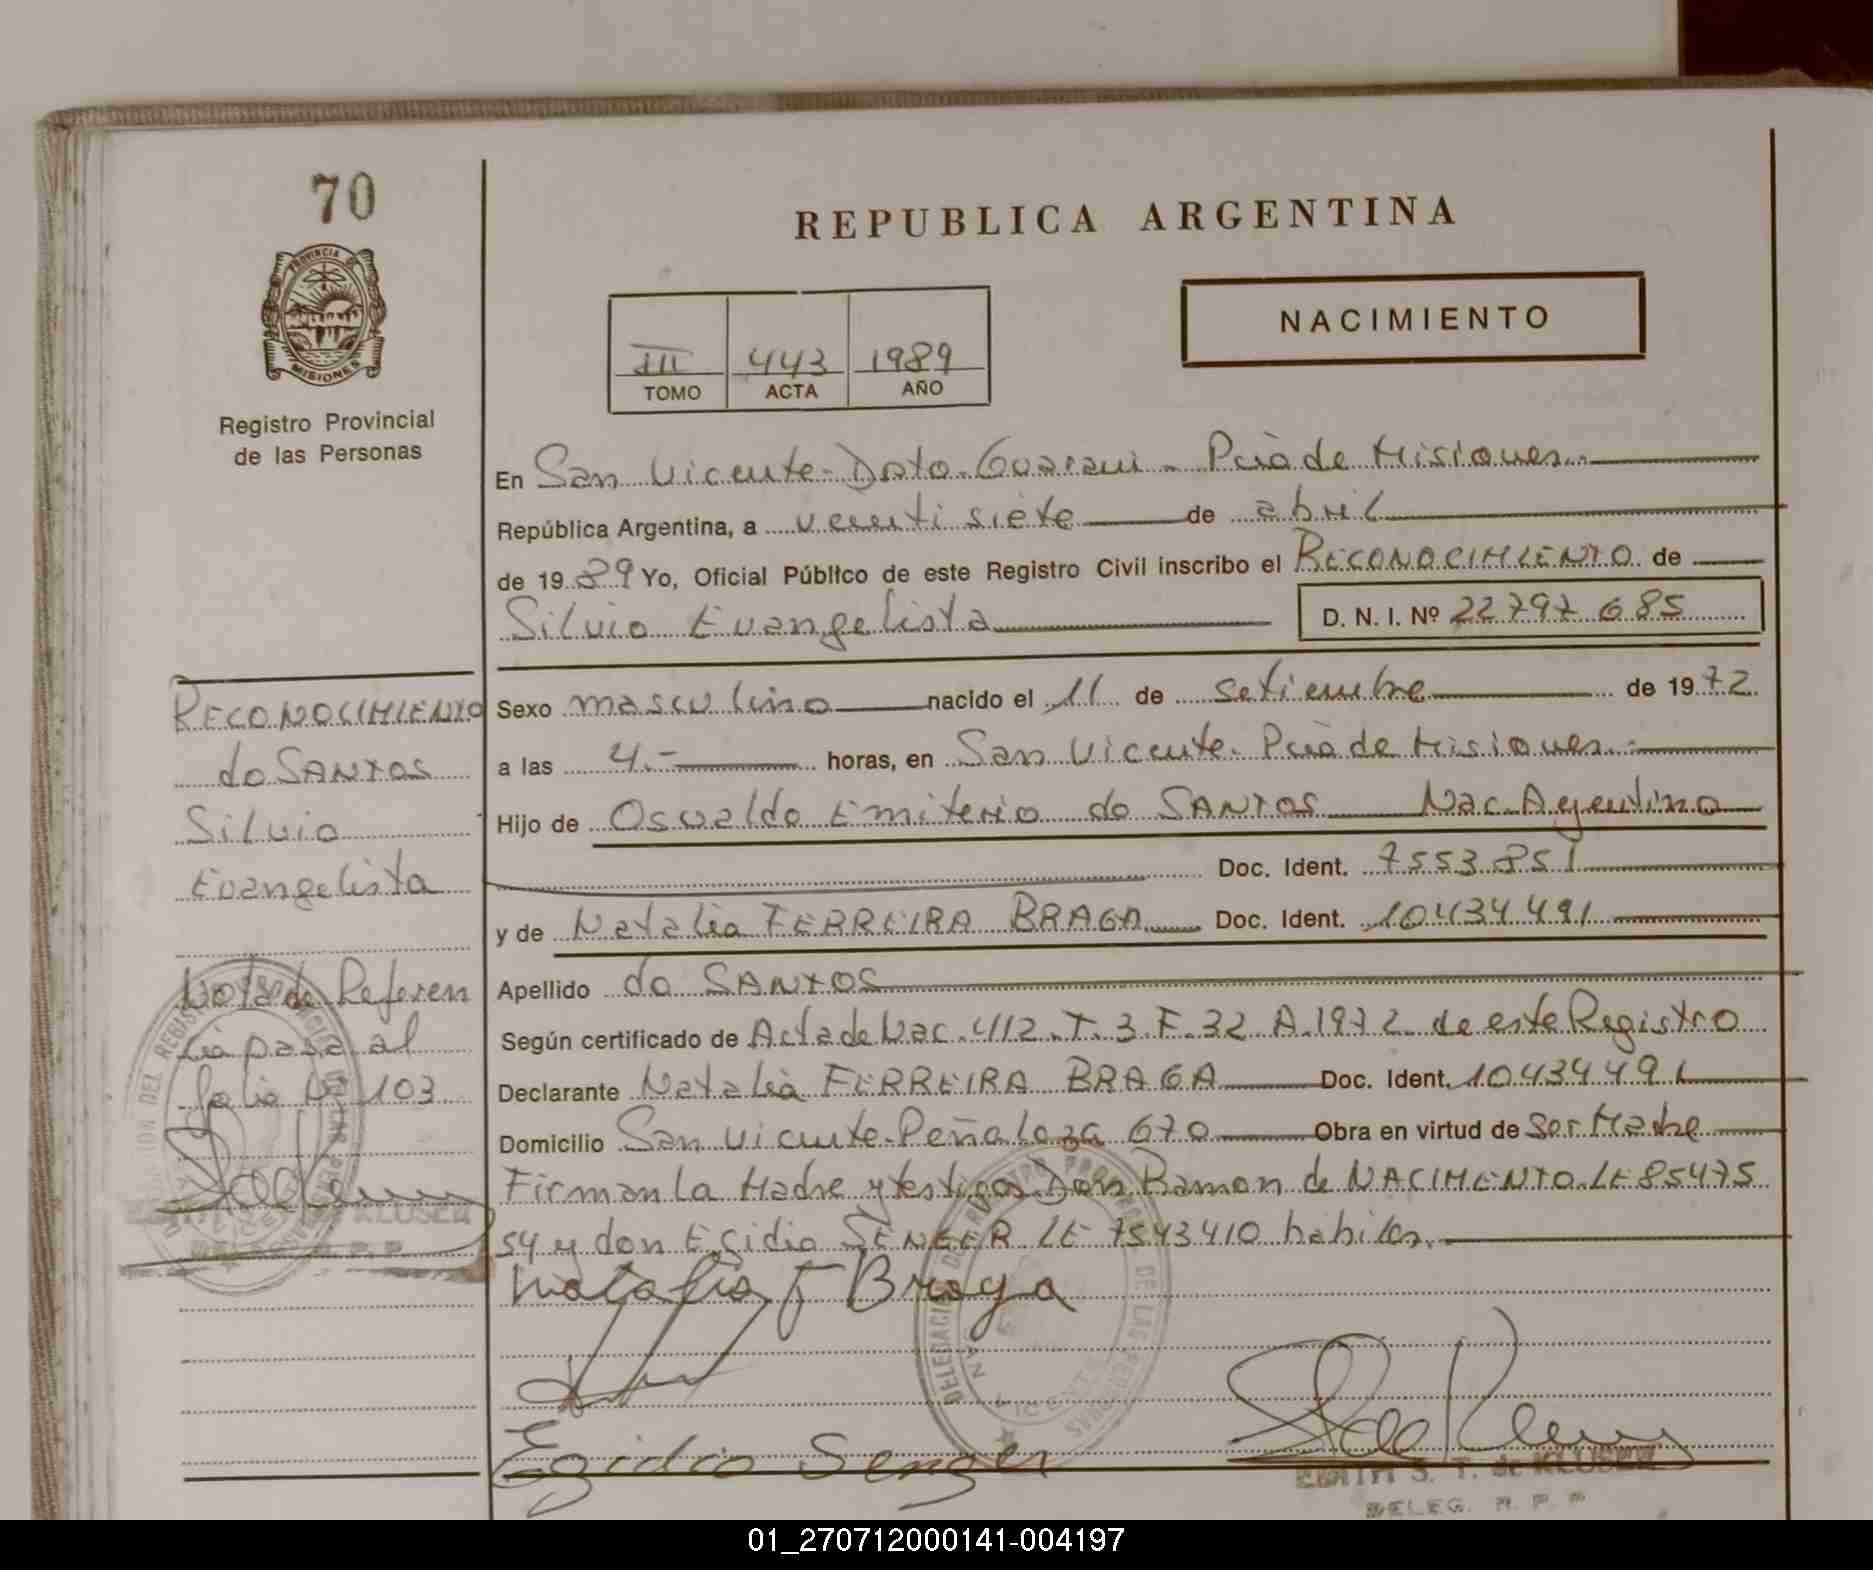 70
REPUBLICA ARGENTINA
PROVINCIA DE
MISIONES
NACIMIENTO
III 443 1989
TOMO ACTA AÑO
Registro Provincial
de las Personas
En San Vicente - Dpto. Guarani - Pcia de Misiones.-
República Argentina, a veinti siete de abril
de 1989 Yo, Oficial Público de este Registro Civil inscribo el RECONOCIMIENTO de
Silvio Evangelista D. N. I. Nº 22797685
RECONOCIMIENTO
do SANTOS
Silvio
Evangelista
Nota de Referen
cia pasa al
folio Nº 103
Sexo masculino nacido el 11 de setiembre de 1972
a las 4.- horas, en San Vicente. Pcia de Misiones.-
Hijo de Osvaldo Emiterio do SANTOS Nac. Argentino
Doc. Ident. 7553.851
y de Natalia FERREIRA BRAGA Doc. Ident. 10434491
Apellido do SANTOS
Según certificado de Acta de Nac. 412. T. 3. F. 32 A. 1972 de este Registro
Declarante Natalia FERREIRA BRAGA Doc. Ident. 10434491
Domicilio San Vicente - Peñaloza 670 Obra en virtud de ser Madre
Firman La Madre y testigos Don Ramon de NACIMENTO. LE 85475
54 y don Egidio SENGER LE 7543410 habiles.
Natalia F Braga
Egidio Senger
EDITH S. T. de KLUSER
DELEG. R. P. P.
01_270712000141-004197